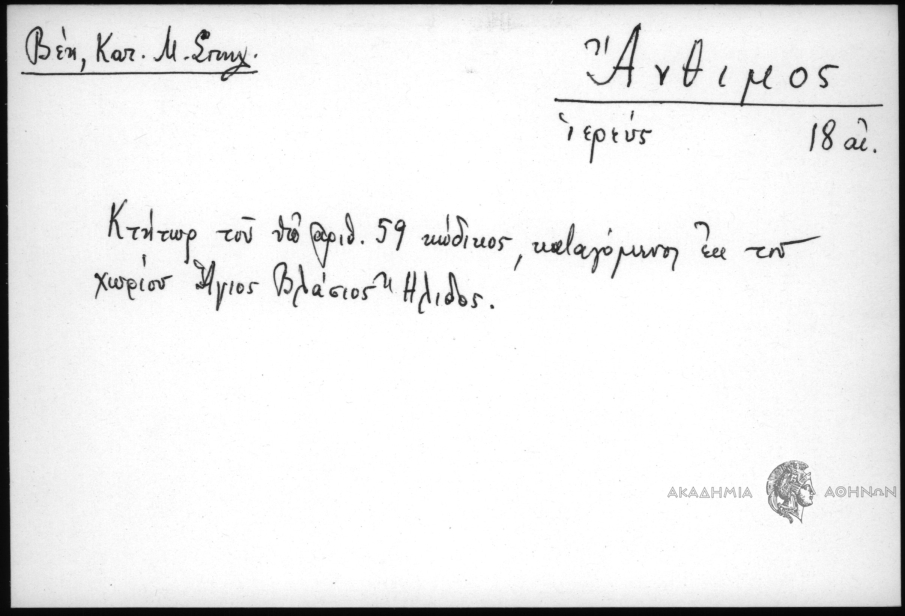 Βέη, Κατ. Μ. Σπηλ.
Ἄνθιμος
ἱερεύς 18 αἰ.
Κτήτωρ τοῦ ὑπ' ἀριθ. 59 κώδικος, καταγόμενος ἐκ τοῦ
χωρίου Ἅγιος Βλάσιος Ἤλιδος.
ΑΚΑΔΗΜΙΑ ΑΘΗΝΩΝ